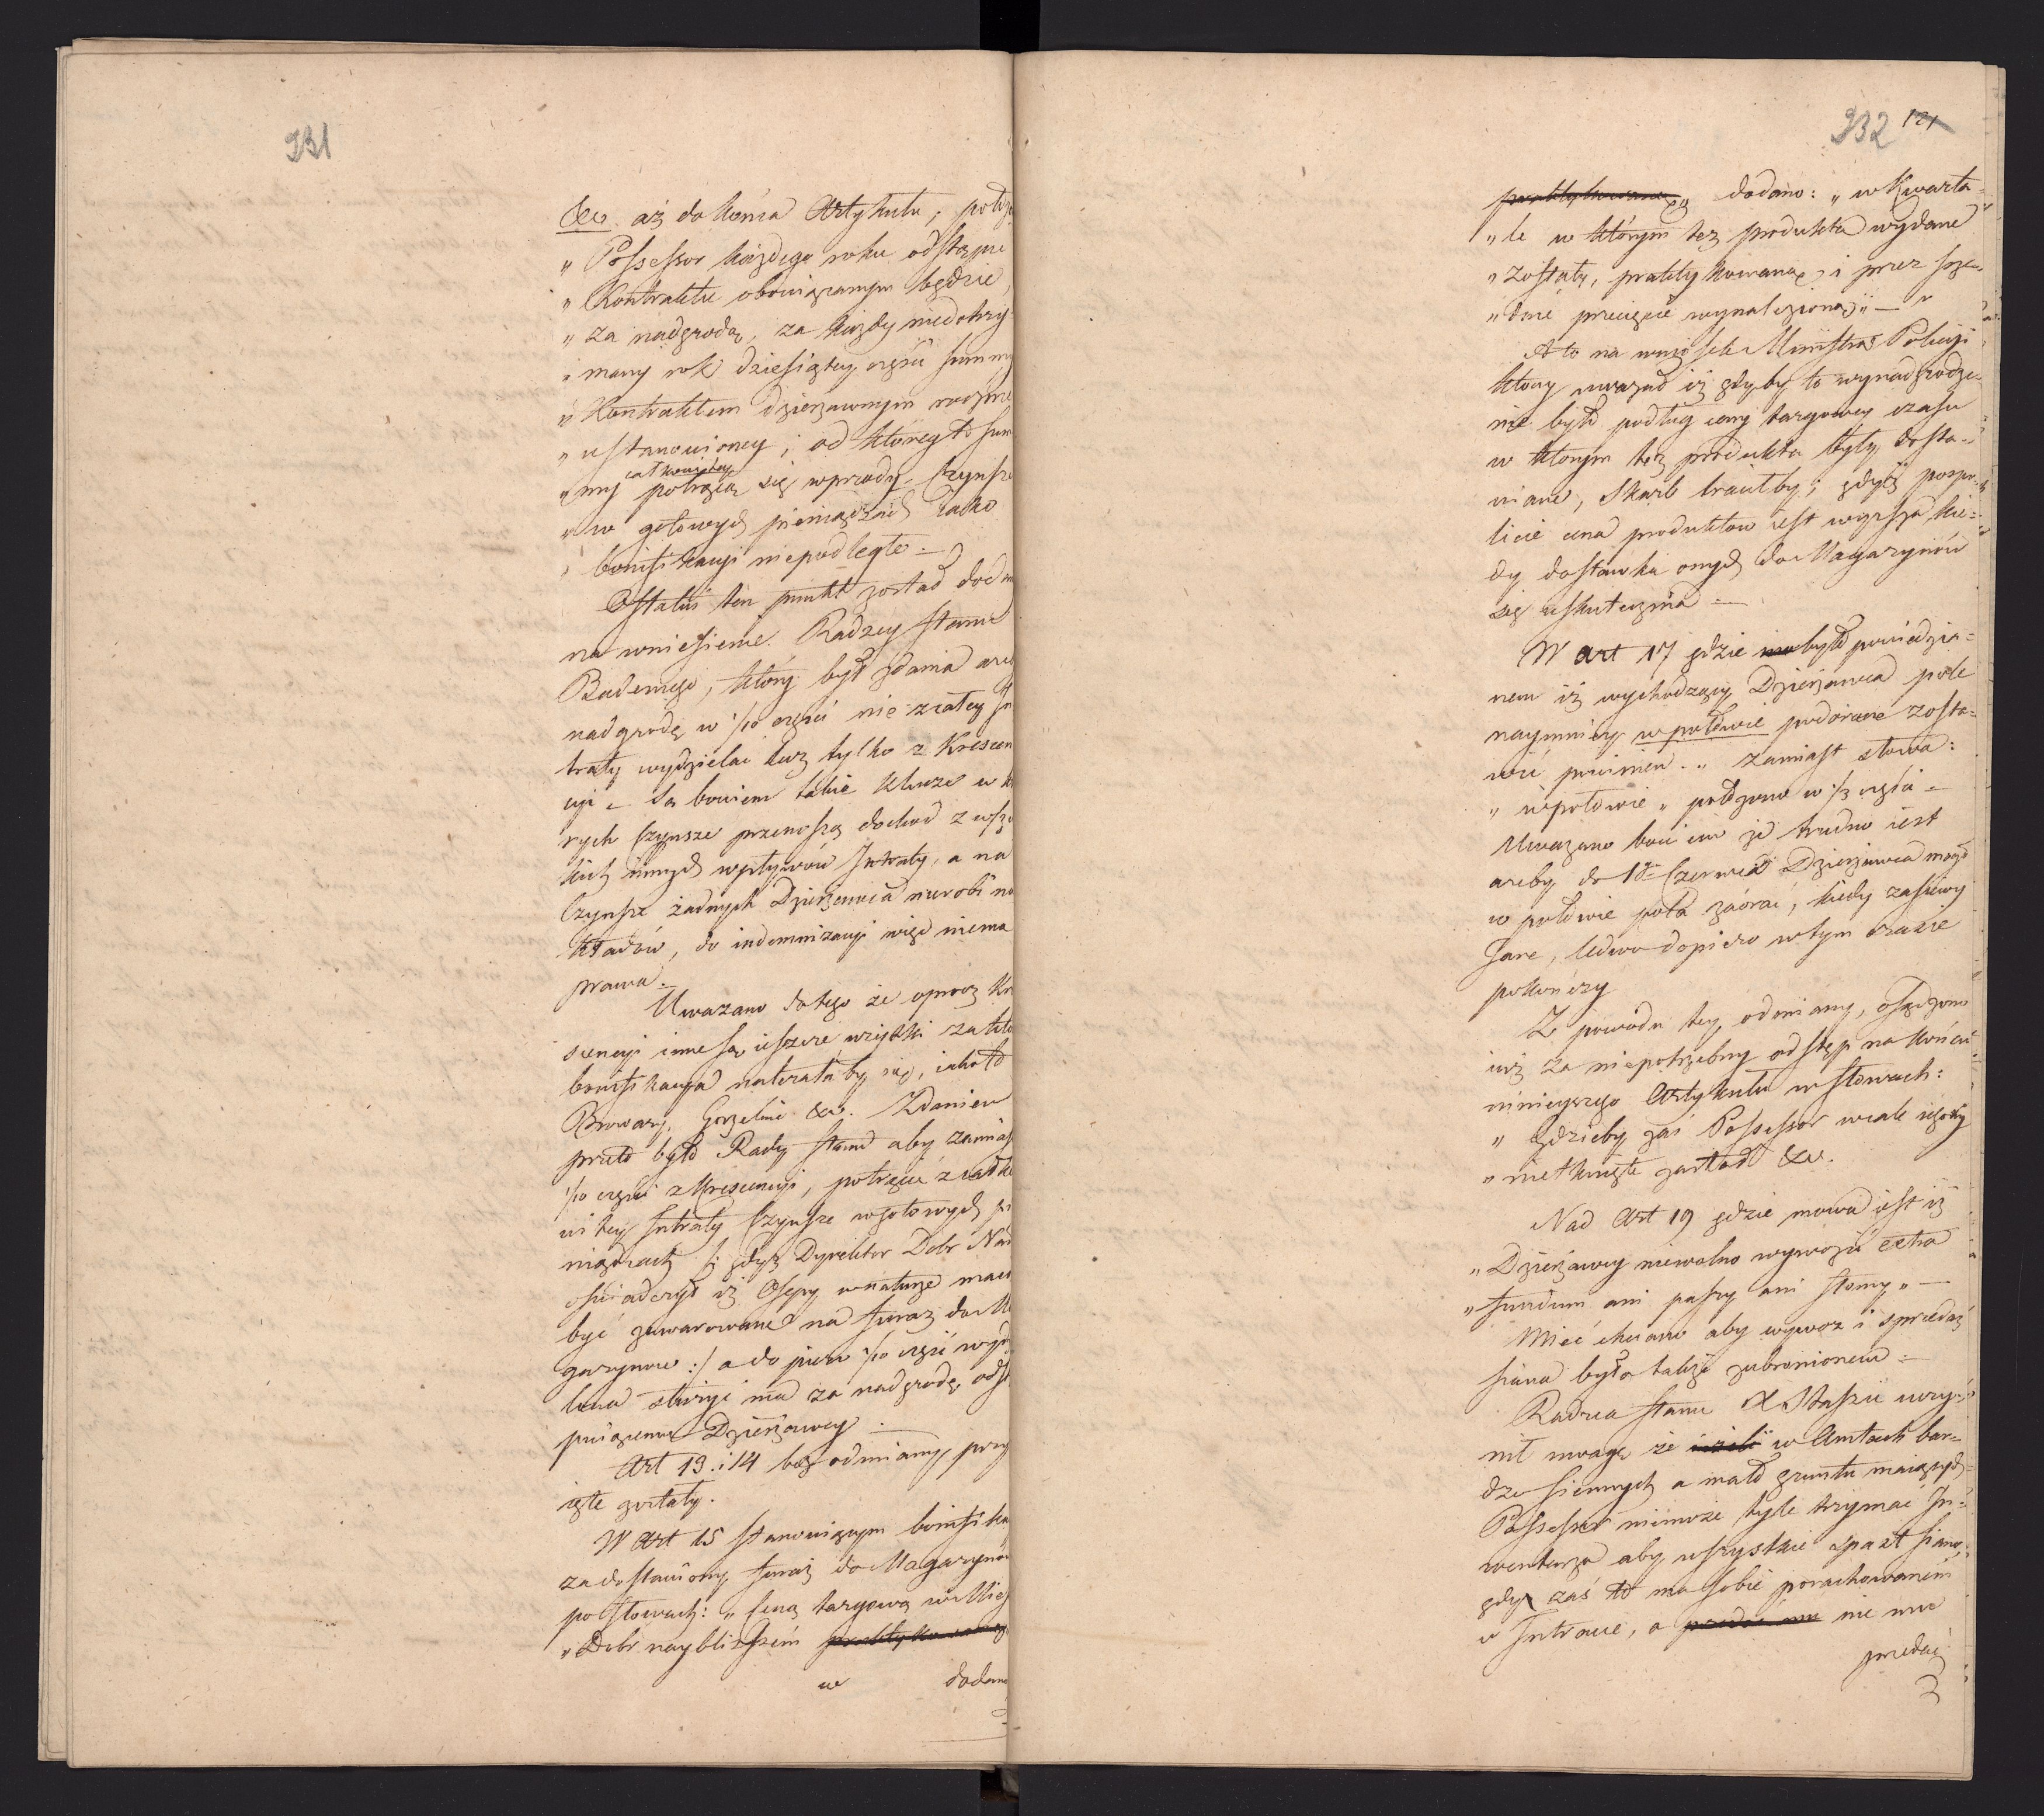 931
&c. aż do końca Artykułu, połoz
„ Possessor każdego roku odstąpie
„ Kontraktu obowiązanym będzie
„ za nadgrodą, za każdy niedotrzy-
„ many rok dziesiątey części summy
„ Kontraktem dzierżawnym rocznie
„ ustanowioney; od którey to sum
całkowitey
„ my potrącą się wprzódy Czynsze
„ w gotowych pieniądzach iako
„ bonifikacyi niepodległe. —
Ostatni ten punkt został doda
na wniesienie Radzcy Stanu
Badeniego, który był zdania aże
nadgrodę w 1/10 części nie z całey In
traty wydzielać lecz tylko z Krescen
cyi. Są bowiem takie klucze w k
rych Czynsze przenoszą dochod z wszy
kich innych wpływów Intraty, a na
Czynsze żadnych Dzierżawca nierobi na
kładów, do indemnizacyi więc niema
prawa.
Uważano do tego że oprócz Kre
scencyi inne są ieszcze użytki za któ
bonifikacya należałaby się, iako to
Browary, Gorzelnie &c. Zdaniem
przeto było Rady Stanu aby zamias
1/10 części z Krescencyi, potrącić z całko
witey Intraty Czynsze w gotowych pi
niądzach /: gdyż Dyrektor Dobr Nar
oświadczył iż Osepy w naturze maią
być zawarowane na furaż do Ma
gazynow :/ a dopiero 1/10 część wydz
lona służyć ma za nadgrodę odst
puiącemu Dzierżawcy. —
Art 13. i 14 bez odmiany przy
ięte zostały.
W Art 15 stanowiącym bonifika
za dostawiony furaż do Magazynów
po słowach: „ Ceną targową w Mieś
„ Dobr naybliższém praktykowaną
w dodano
932 121
praktykowaną „ dodano: „ w Kwarta-
„ le w którym też produkta wydane
„ zostały, praktykowaną, i przez śre-
„ dnie przecięcie wynalezioną „ —
A to na wniosek Ministra Policyi
który uważał iż gdyby to wynadgrodze-
nie było podług ceny targowey czasu
w którym też produkta były dosta-
wiane, Skarb traciłby; gdyż pospo-
licie cena produktow iest wyższa kie-
dy dostawka onych do Magazynów
się uskutecznia —
W Art 17 gdzie było powiedzia-
nem iż wychodzący Dzierżawca pole
naymniey w połowie podorane zosta-
wić powinien. „ Zamiast słowa:
„ w połowie „ położono w 1/3 części —
Uważano bowiem że trudno iest
ażeby do 1go Czerwca Dzierżawca mógł
w połowie pola zaorać, kiedy zasiewy
Jare, ledwo dopiero w tym czasie
pokończy
Z powodu tey odmiany, osądzono
iuż za niepotrzebny odstęp na końcu
ninieyszego Artykułu w słowach:
„ gdzieby zaś Possessor wcale ugory
„ nietknięte zostały &c.
Nad Art 19 gdzie mowa iest iż
„ Dzierżawcy niewolno wywozić extra
„ fundum ani paszy ani słomy „ —
Mieć chciano aby wywoz i sprzedaż
siana było także zabronionem —
Radzca Stanu X Staszic uczy-
nił uwagę że ieżeli w Amtach bar-
dzo siennych a mało gruntu maiących
Possessor niemoże tyle trzymać In-
wentarza aby wszystkie spasł siano,
gdy zaś to ma sobie porachowaném
w Intracie, a przedać mu nie mu
przedać